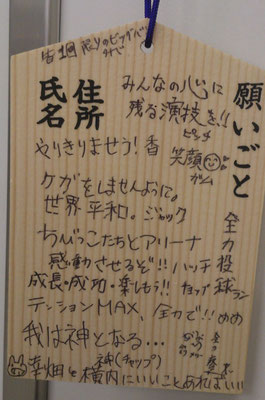 願いごと
住所
氏名
みんなの心に
残る演技を!!
ピッチ
やりきりませう!香
笑顔
ガム
ケガをしませんように。
世界平和。ジャック
ちびっこたちとアリーナ
感動させるぞ!!ハッチ
成長・成功・楽しもう!!
全力投球
ラン
テンションMAX、全力で!!めめ
我は神となる...
神(チャップ)
幸畑と横内にいいことあればいい!!